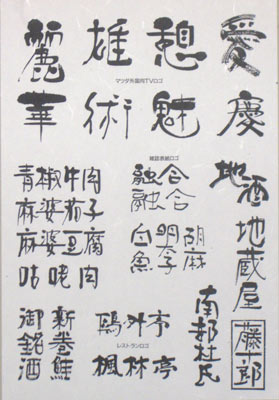 愛 憩 雄 麗
慶 魅 術 華
マツダ外国向TVロゴ
雑誌表紙ロゴ
地酒
地蔵屋
藤十郎
南部杜氏
胡麻
合合
融融
明亭
白魚
肉子腐肉
牛茄豆
椒婆婆咾
青麻麻咕
鴎外亭
レストランロゴ
楓林亭
新巻鮭
御銘酒